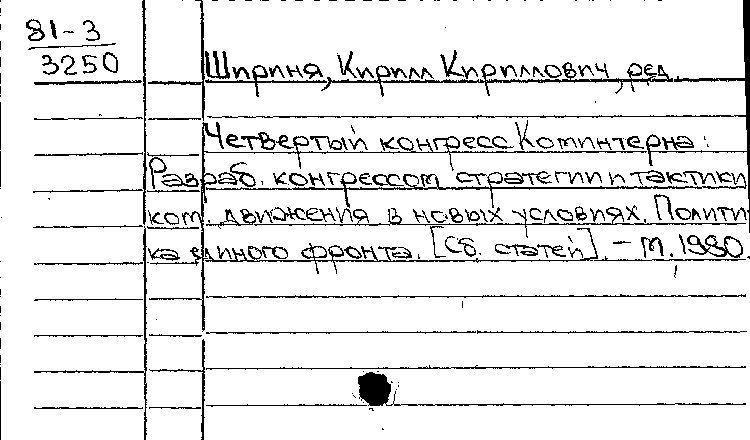 81-3
3250
Шириня, Кирилл Кириллович, ред.
Четвертый конгресс Коминтерна:
Разраб. конгрессом стратегии и тактики
ком. движения в новых условиях. Полити
ка единого фронта. [Сб. статей]. – М. 1980.